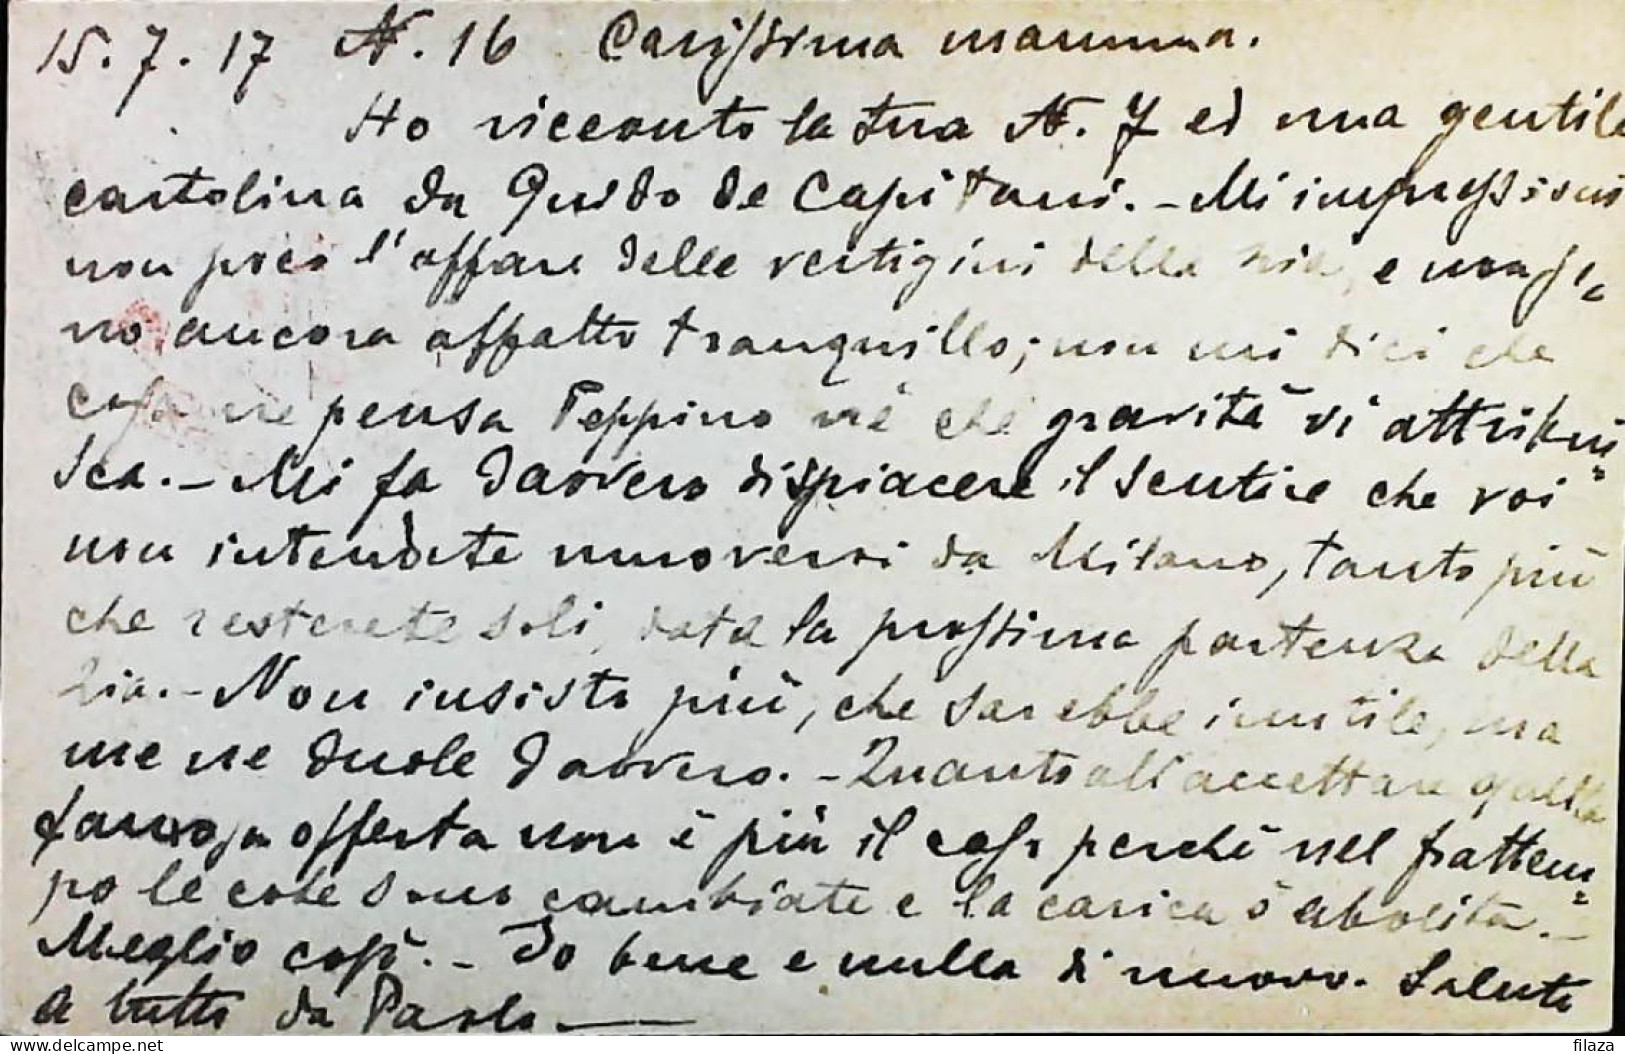 15.7.17 N. 16 Carissima mamma.
Ho ricevuto la tua N. 7 ed una gentile
cartolina da Guido de Capitani. - Mi impressionò
non poco l'affare delle vertigini della zia, e non so
no ancora affatto tranquillo; non mi dici che
cosa ne pensa Peppino nè che gravità vi attribui=
sca. - Mi fa davvero dispiacere il sentire che voi
non intendete muovervi da Milano, tanto più
che resterete soli, data la prossima partenza della
zia. - Non insisto più, che sarebbe inutile, ma
me ne duole davvero. - Quanto all'accettare quella
famosa offerta non è più il caso perchè nel frattem=
po le cose sono cambiate e la carica è abolita. -
Meglio così. - Io bene e nulla di nuovo. Saluti
a tutti da Paolo
filaza